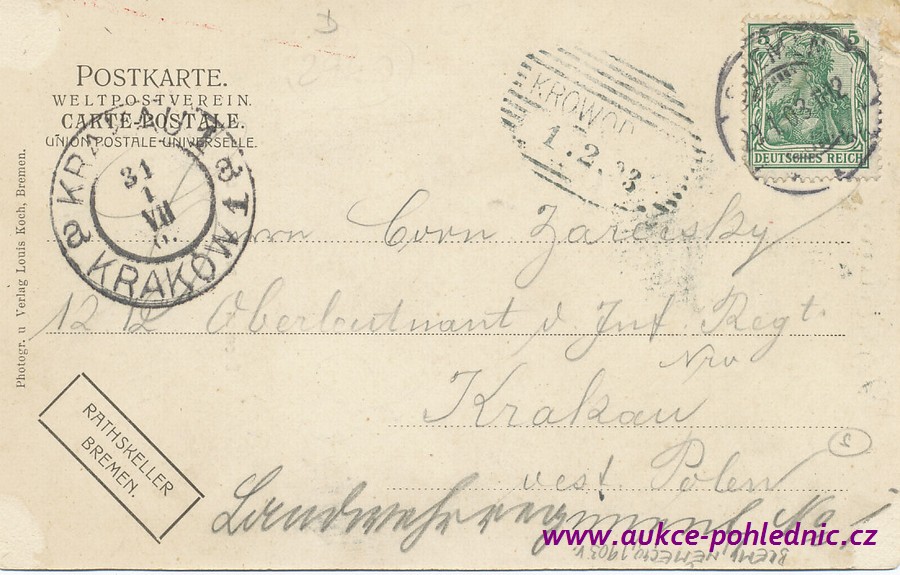 POSTKARTE.
WELTPOSTVEREIN.
CARTE-POSTALE.
UNION POSTALE UNIVERSELLE.
KRAKAU 1
31
1
VII
KRAKÓW 1
KROWOD
1.2.03
5 5
DEUTSCHES REICH
Photogr. u Verlag Louis Koch, Bremen.
Herrn Corn Zarersky
Oberleutnant d Inf Regt.
Nro
Krakau
S
vest Polen
Landwehrregiment No 1
RATHSKELLER
BREMEN.
www.aukce-pohlednic.cz
NĚMECKO, 1903